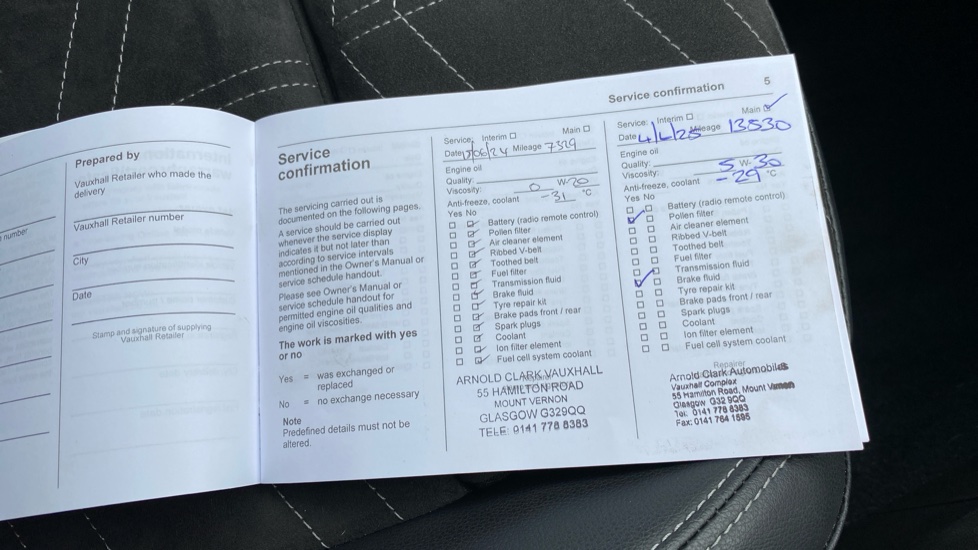 number
Prepared by
Vauxhall Retailer who made the
delivery
Vauxhall Retailer number
City
Date
Stamp and signature of supplying
Vauxhall Retailer
Service
confirmation
The servicing carried out is
documented on the following pages.
A service should be carried out
whenever the service display
indicates it but not later than
according to service intervals
mentioned in the Owner's Manual or
service schedule handout.
Please see Owner's Manual or
service schedule handout for
permitted engine oil qualities and
engine oil viscosities.
The work is marked with yes
or no
Yes = was exchanged or
replaced
No = no exchange necessary
Note
Predefined details must not be
altered.
Service: Interim ☐ Main ☐
Date /06/24 Mileage 7329
Engine oil
Quality:
Viscosity: 0 W-20
Anti-freeze, coolant -31 °C
Yes No
Battery (radio remote control)
Pollen filter
Air cleaner element
Ribbed V-belt
Toothed belt
Fuel filter
Transmission fluid
Brake fluid
Tyre repair kit
Brake pads front / rear
Spark plugs
Coolant
Ion filter element
Fuel cell system coolant
ARNOLD CLARK VAUXHALL
55 HAMILTON ROAD
MOUNT VERNON
GLASGOW G329QQ
TELE: 0141 778 8383
Service confirmation 5
Service: Interim ☐ Main ☑
Date 4/4/25 Mileage 13530
Engine oil
Quality:
Viscosity: 5 W-30
Anti-freeze, coolant -29 °C
Yes No
Battery (radio remote control)
Pollen filter
Air cleaner element
Ribbed V-belt
Toothed belt
Fuel filter
Transmission fluid
Brake fluid
Tyre repair kit
Brake pads front / rear
Spark plugs
Coolant
Ion filter element
Fuel cell system coolant
Repairer
Arnold Clark Automobiles
Vauxhall Complex
55 Hamilton Road, Mount Vernon
Glasgow G32 9QQ
Tel: 0141 778 8383
Fax: 0141 764 1585